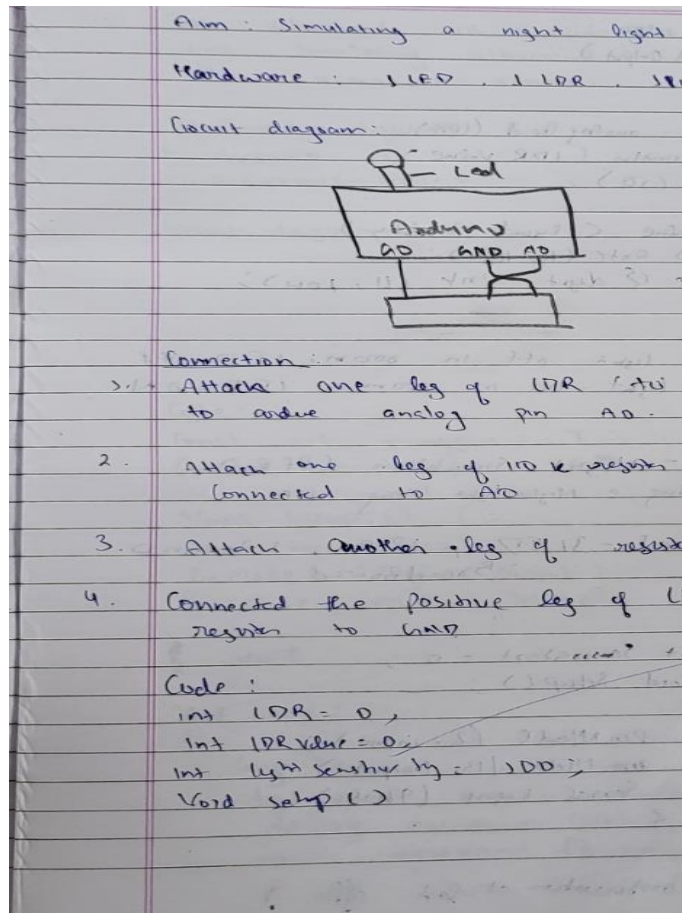 Aim : Simulating a night light
Hardware : 1 LED . 1 LDR .
Circuit diagram :
Led
Arduno
GND A0
Connection :
1. Attach one leg of LDR
to analog pin A0.
2. Attach one leg of 110 k
Connected to A0
3. Attach another leg of
4. Connected the positive leg of
to GND
Code :
int LDR = 0,
int LDR value = 0;
int light = 500;
Void setup ()